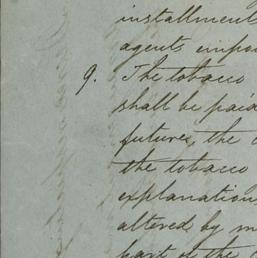 installment
agents impo
9. The tobacco
shall be paid
futures, the
the tobacco
explanation
altered by m
part of the